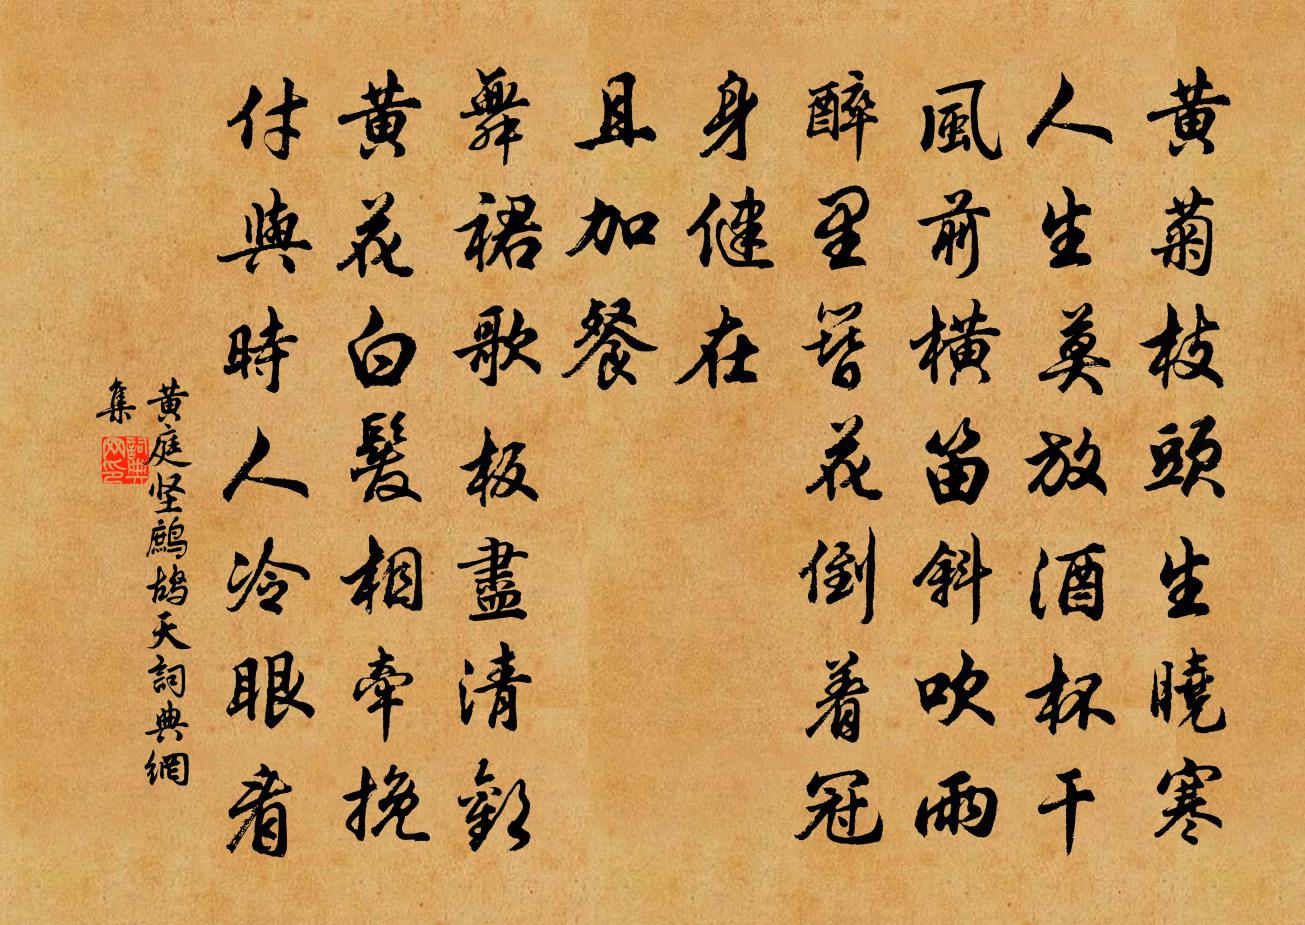 黄菊枝頭生曉寒
人生莫放酒杯干
風前橫笛斜吹雨
醉里簪花倒着冠
身健在
且加餐
舞裙歌板盡清歡
黄花白髮相牽挽
付與時人冷眼看
黄庭坚鷓鴣天詞典網
集
詞典網印